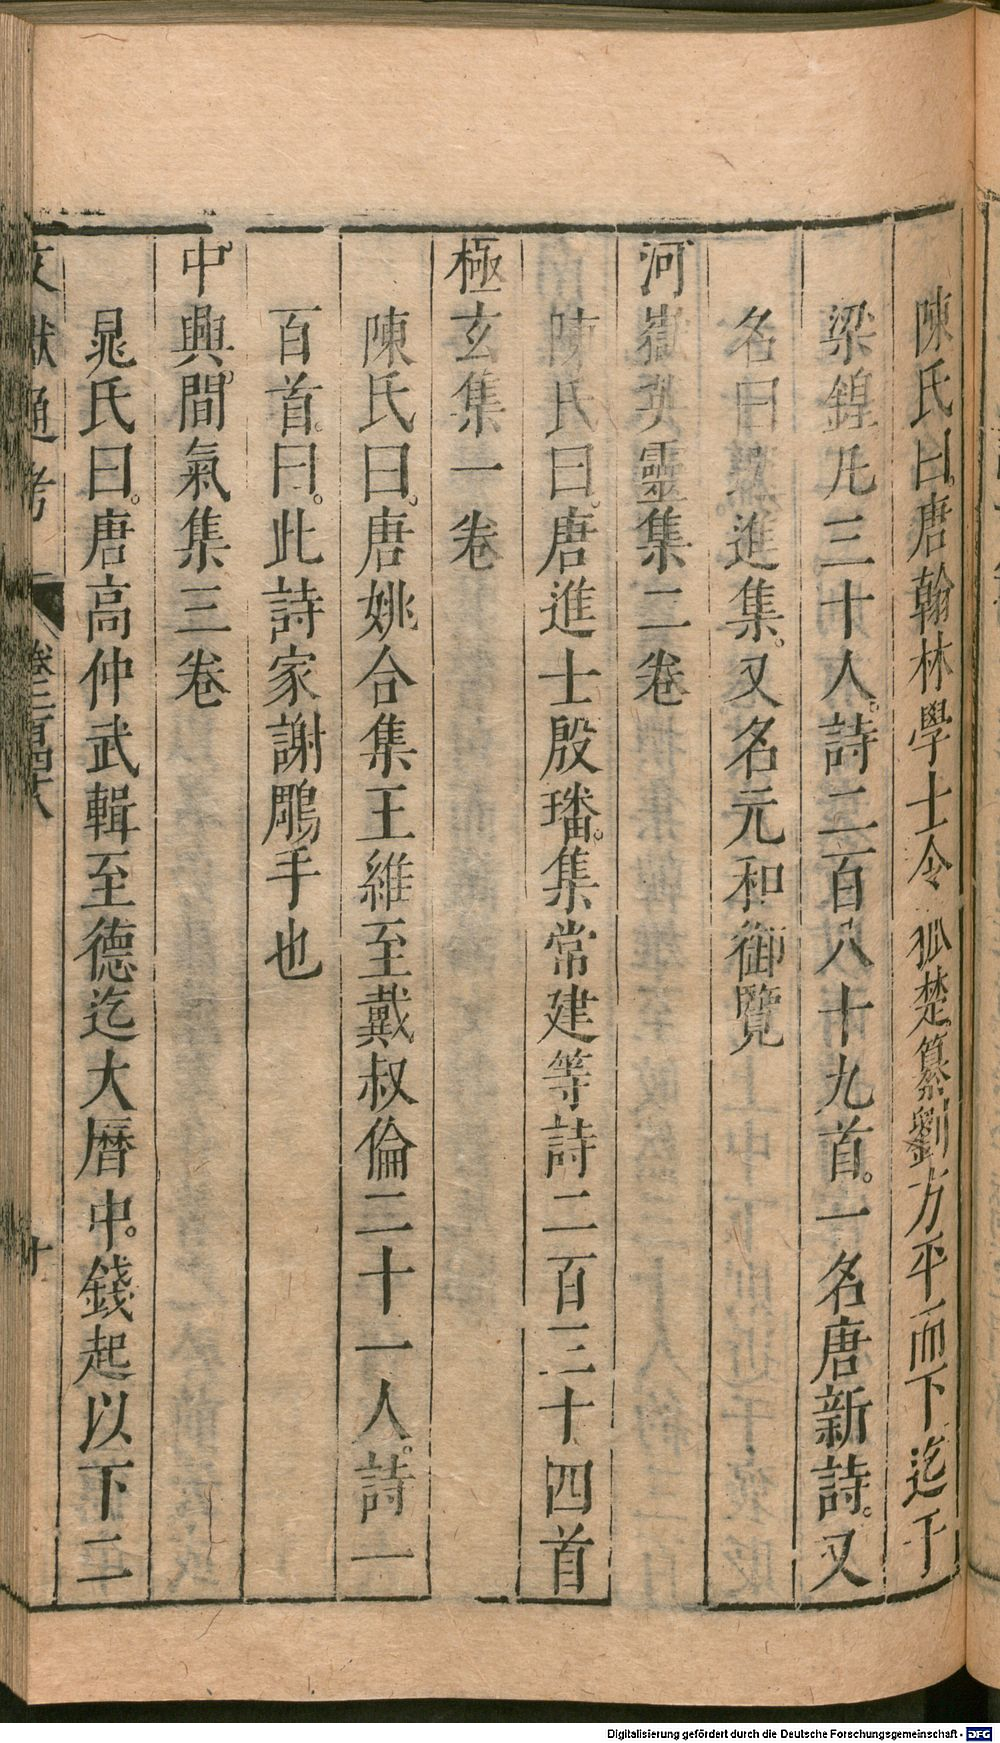 陳氏曰。唐翰林學士令狐楚纂劉方平而下迄于
梁鍠凡三十人。詩二百八十九首。一名唐新詩。又
名曰選進集。又名元和御覽
河嶽英靈集二卷
陳氏曰。唐進士殷璠。集常建等詩二百三十四首
極玄集一卷
陳氏曰。唐姚合集王維至戴叔倫二十一人。詩一
百首。曰。此詩家謝鵰手也
中興間氣集三卷
晁氏曰。唐高仲武輯至德迄大曆中。錢起以下二
文獻通考 卷二百四十八 十
Digitalisierung gefördert durch die Deutsche Forschungsgemeinschaft - DFG